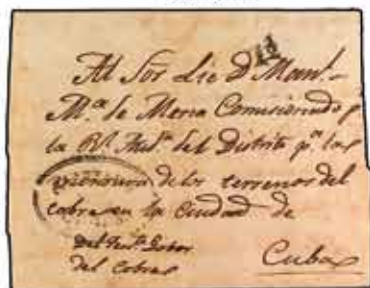 Al Sor Lic D. Man.l
M.a de Mena Comisionado p
la Rl Aud.a del Distrito p.a las
de los terrenos del
cobre en la Ciudad de
Cuba
del Cobre